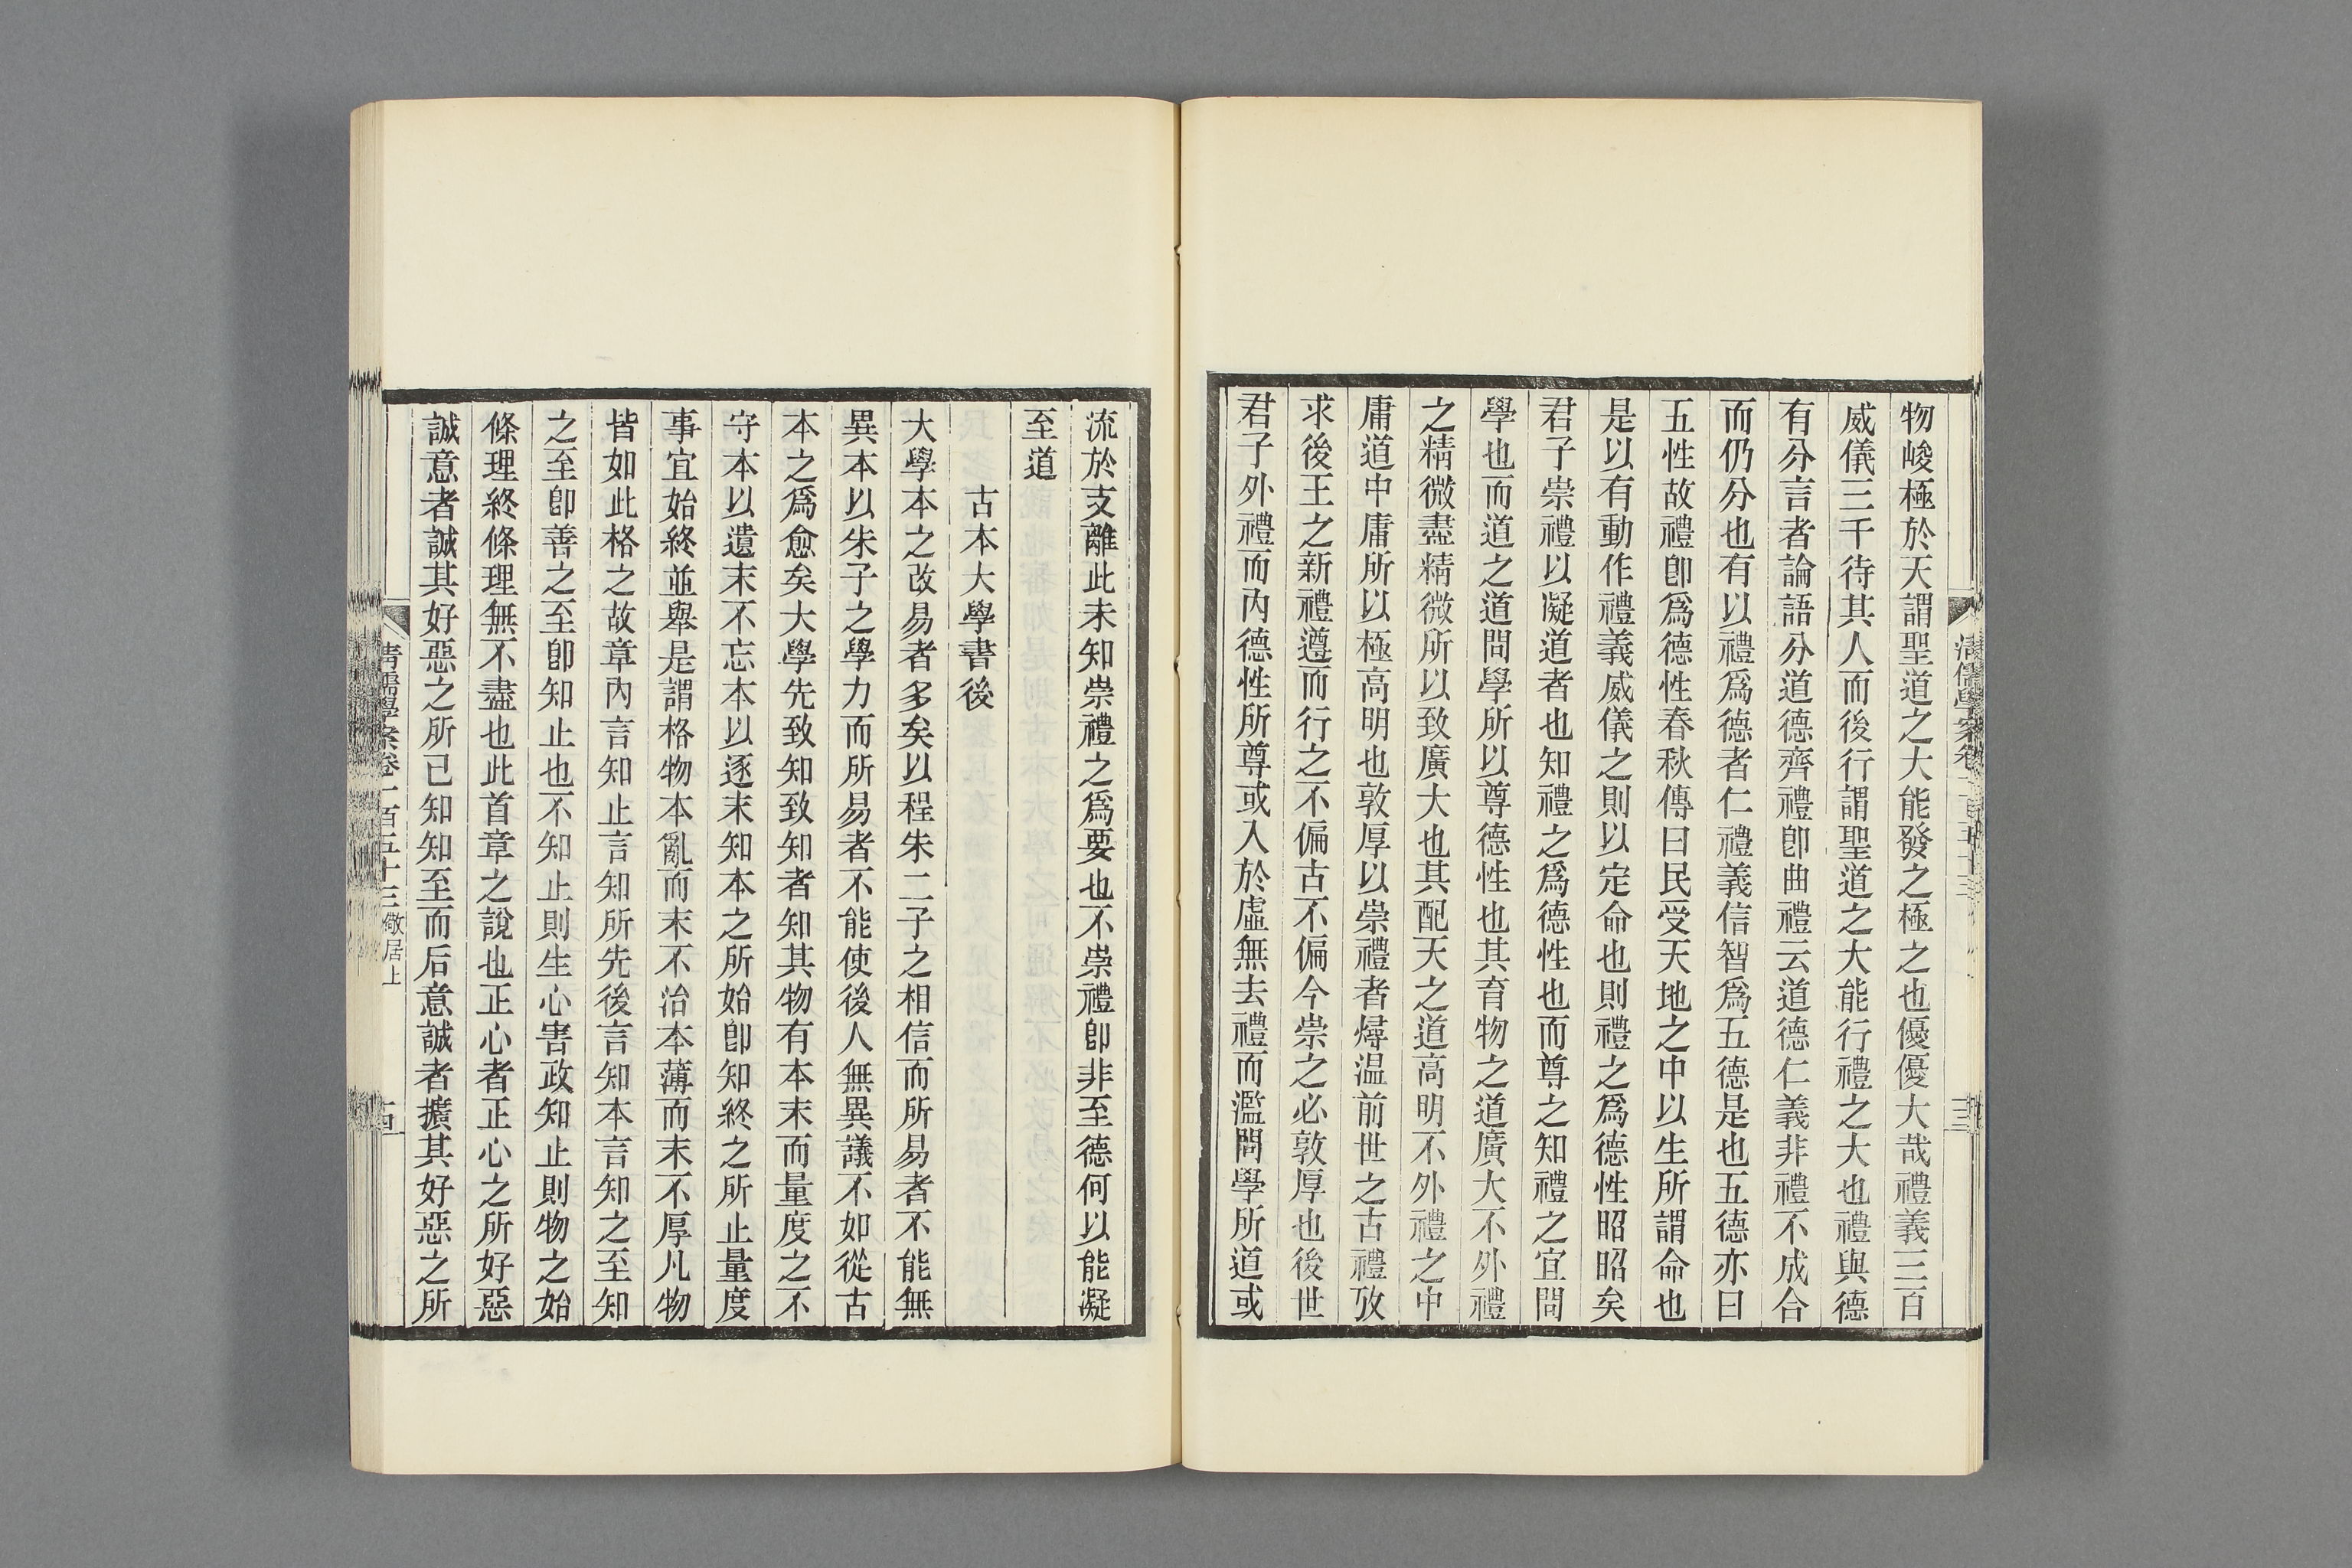 物峻極於天謂聖道之大能發之極之也優優大哉禮義三百
威儀三千待其人而後行謂聖道之大能行禮之大也禮與德
有分言者論語分道德齊禮卽曲禮云道德仁義非禮不成合
而仍分也有以禮爲德者仁禮義信智爲五德是也五德亦曰
五性故禮卽爲德性春秋傳曰民受天地之中以生所謂命也
是以有動作禮義威儀之則以定命也則禮之爲德性昭昭矣
君子崇禮以凝道者也知禮之爲德性也而尊之知禮之宜問
學也而道之道問學所以尊德性也其育物之道廣大不外禮
之精微盡精微所以致廣大也其配天之道高明不外禮之中
庸道中庸所以極高明也敦厚以崇禮者燖温前世之古禮攷
求後王之新禮遵而行之不偏古不偏今崇之必敦厚也後世
君子外禮而內德性所尊或入於虛無去禮而濫問學所道或
流於支離此未知崇禮之爲要也不崇禮卽非至德何以能凝
至道
古本大學書後
大學本之改易者多矣以程朱二子之相信而所易者不能無
異本以朱子之學力而所易者不能使後人無異議不如從古
本之爲愈矣大學先致知致知者知其物有本末而量度之不
守本以遺末不忘本以逐末知本之所始卽知終之所止量度
事宜始終並舉是謂格物本亂而末不治本薄而末不厚凡物
皆如此格之故章內言知止言知所先後言知本言知之至知
之至卽善之至卽知止也不知止則生心害政知止則物之始
條理終條理無不盡也此首章之說也正心者正心之所好惡
誠意者誠其好惡之所已知知至而后意誠者擴其好惡之所
清儒學案卷一百五十三 儆居上